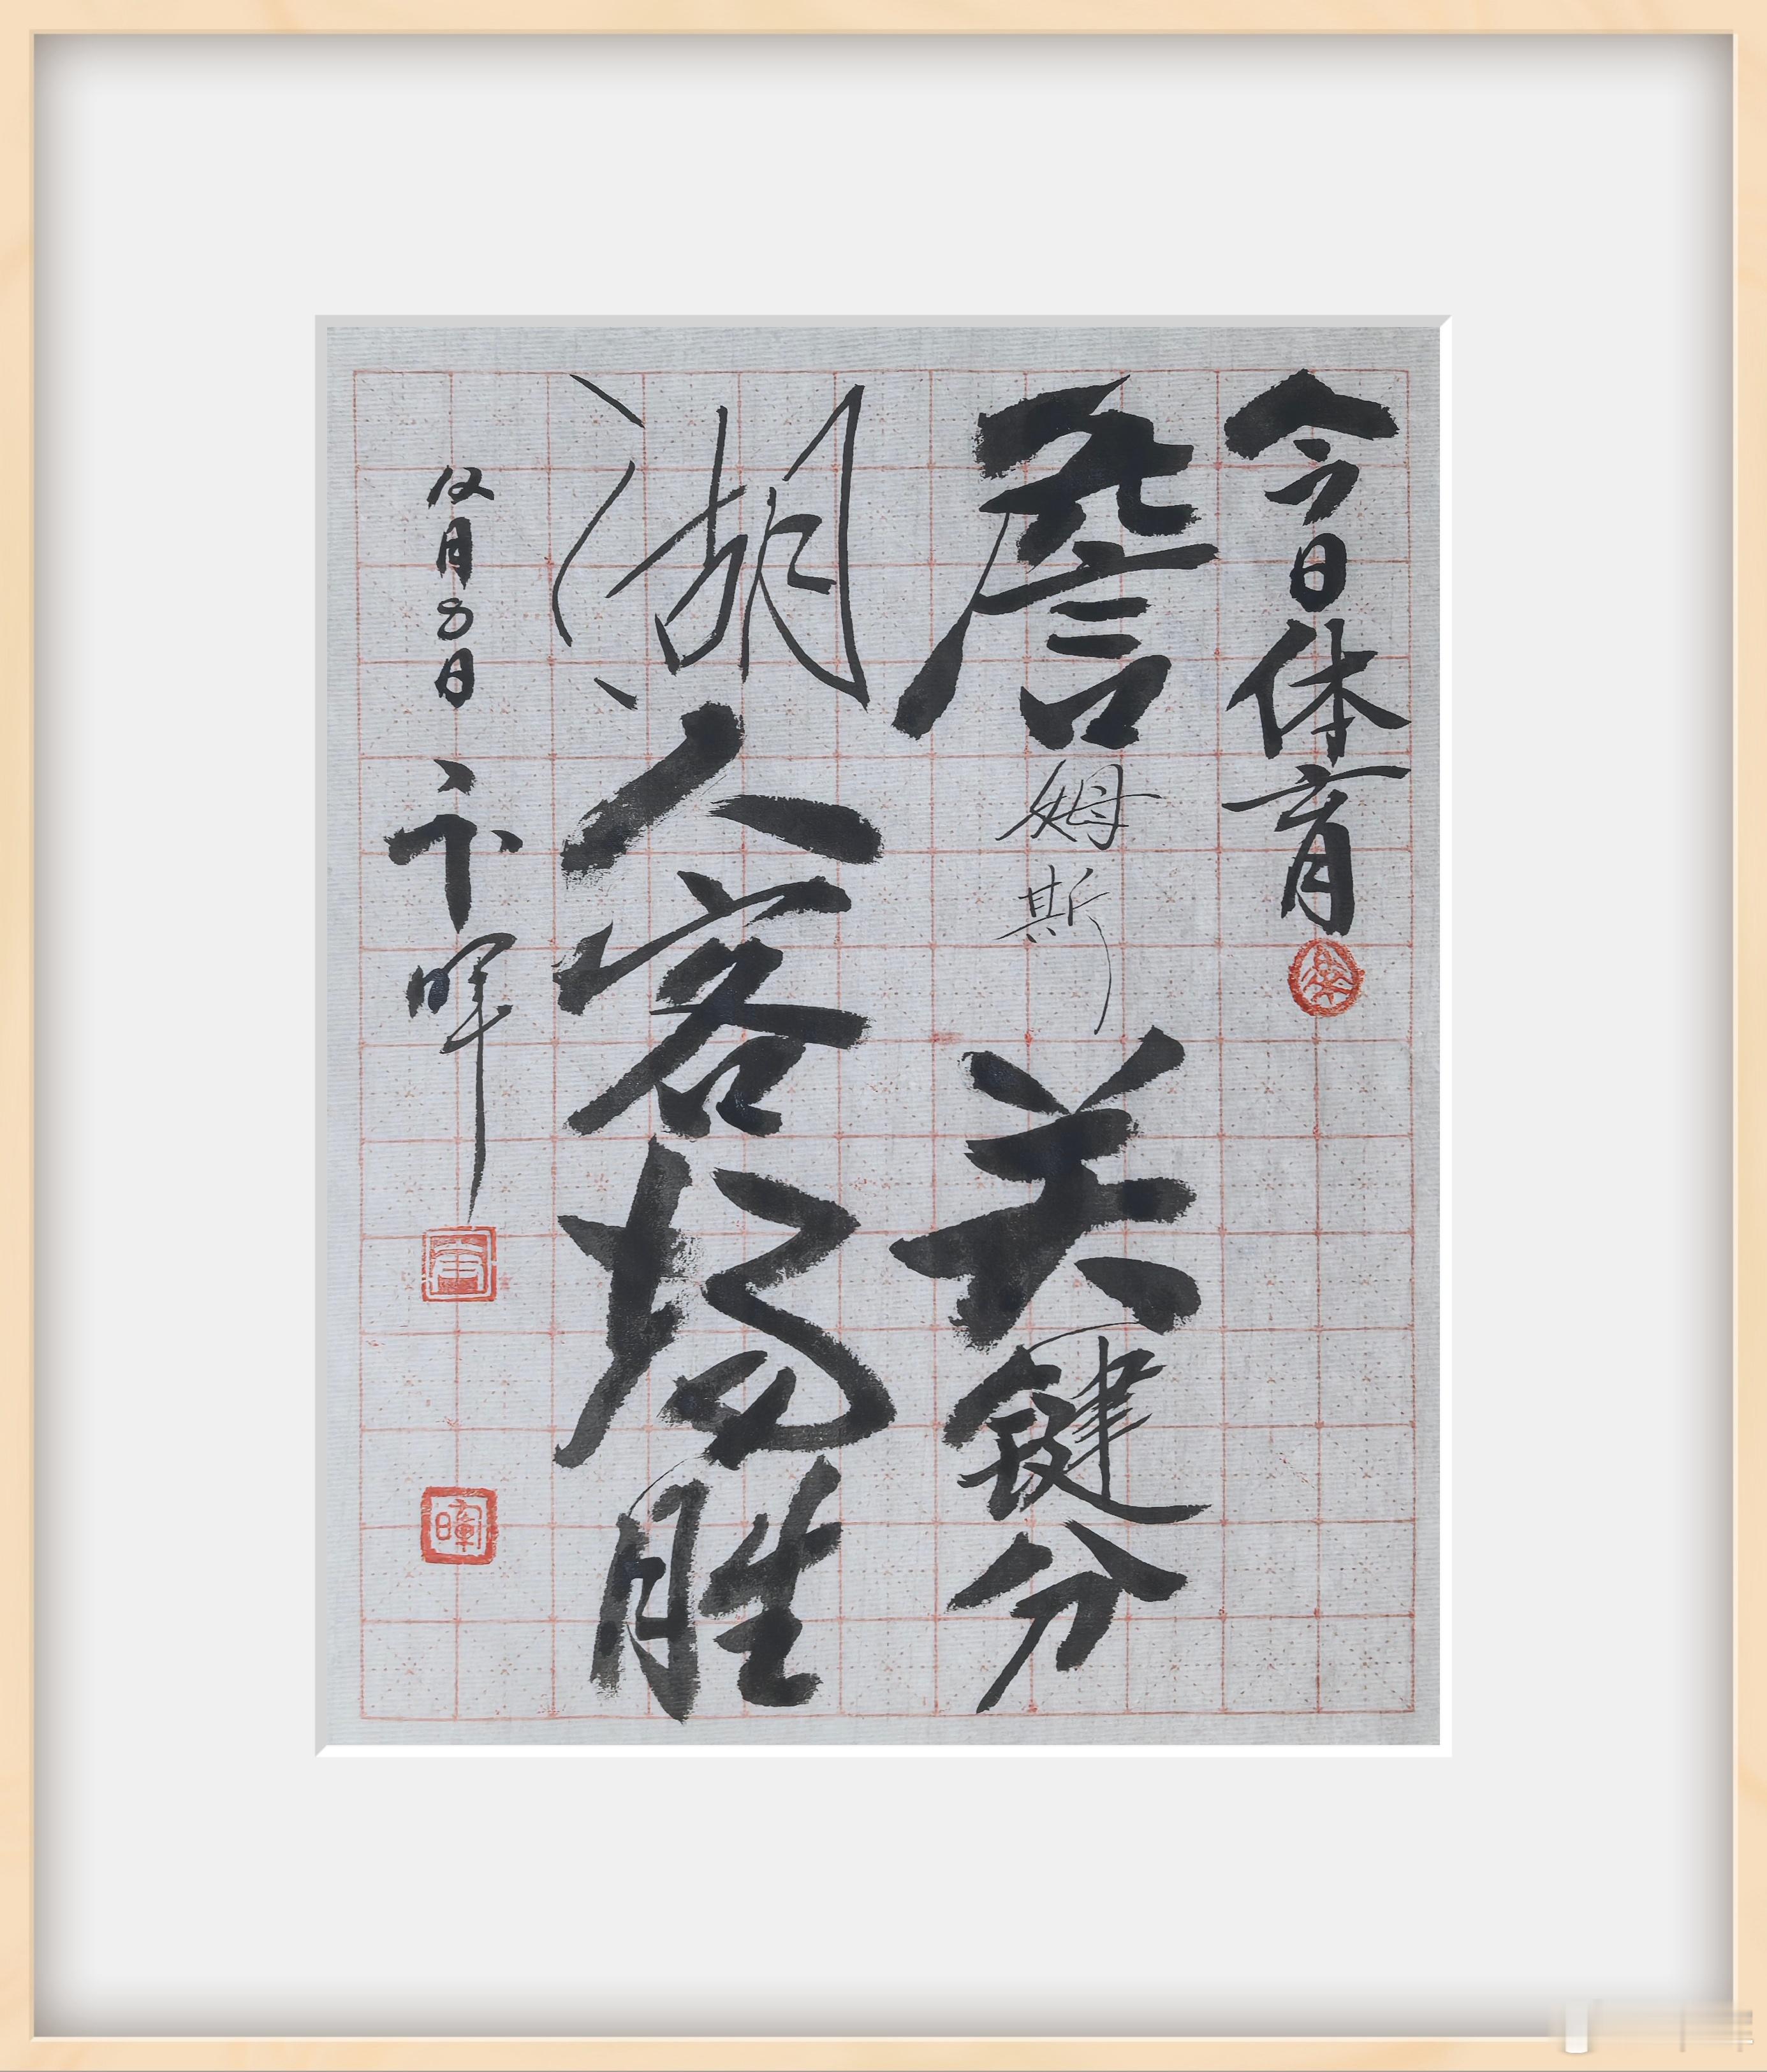 今日体育
詹姆斯关键分
湖人客场胜
月8日 卞晖
暉